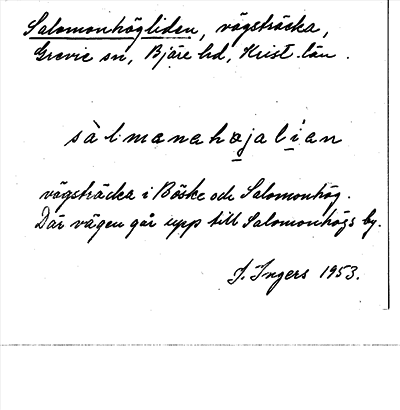 Salomonhögliden, vägsträcka,
Grevie sn, Bjäre hd, Krist. län.
sàlmanahøjalían
vägsträcka i Böske och Salomonhög.
Där vägen går upp till Salomonhögs by.
I. Ingers 1953.